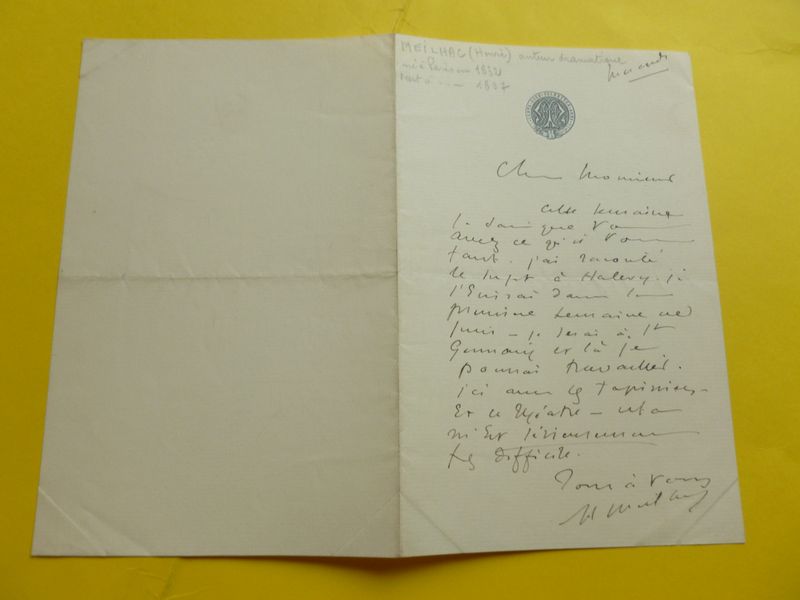 MEILHAC (Henri) auteur dramatique
né à Paris en 1832
Mort à 1897
Cher Monsieur
cette semaine
je que vous
avez ce qu'il vous
faut. j'ai raconté
le sujet à Halevy. je
l'écrirai dans la
première semaine de
Juin - je serai à St
Germain et là je
pourrai travailler.
ici avec les tapissiers
et le théâtre - cela
m'est sérieusement
très difficile.
Tout à vous
H Meilhac